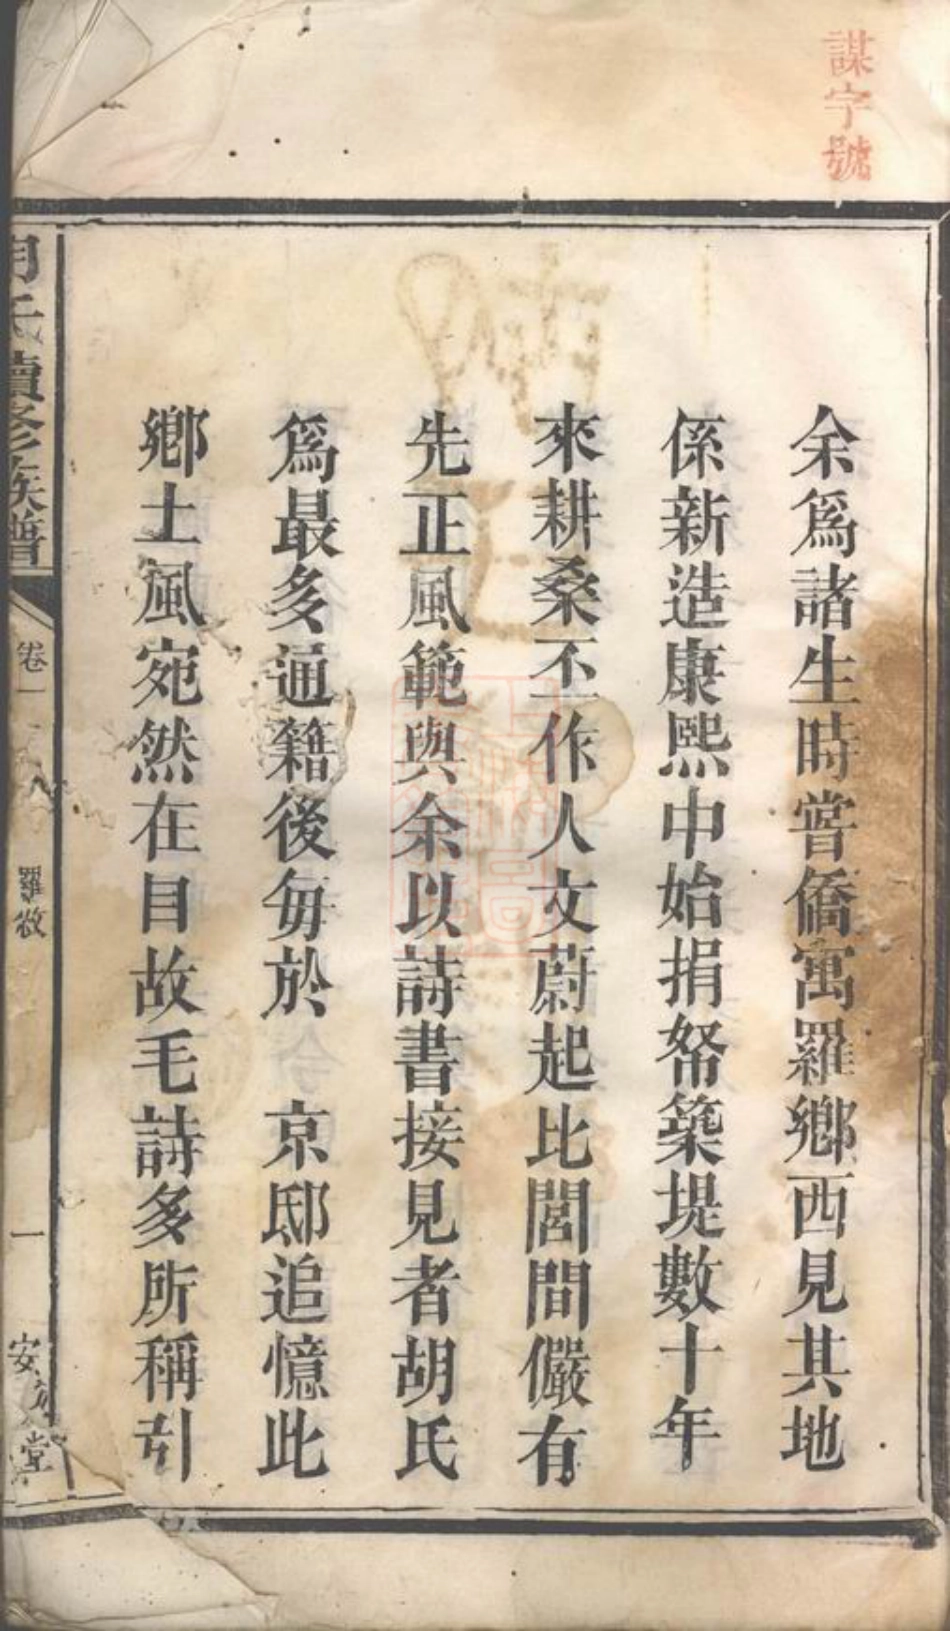 謀字號
余爲諸生時嘗僑寓羅鄉西見其地
係新造康熙中始捐帑築堤數十年
來耕桑丕作人文蔚起比閭間儼有
先正風範與余以詩書接見者胡氏
爲最多通籍後每於 京邸追憶此
鄉土風宛然在目故毛詩多所稱引
氏續修族譜
卷一
羅敘
一
安 堂